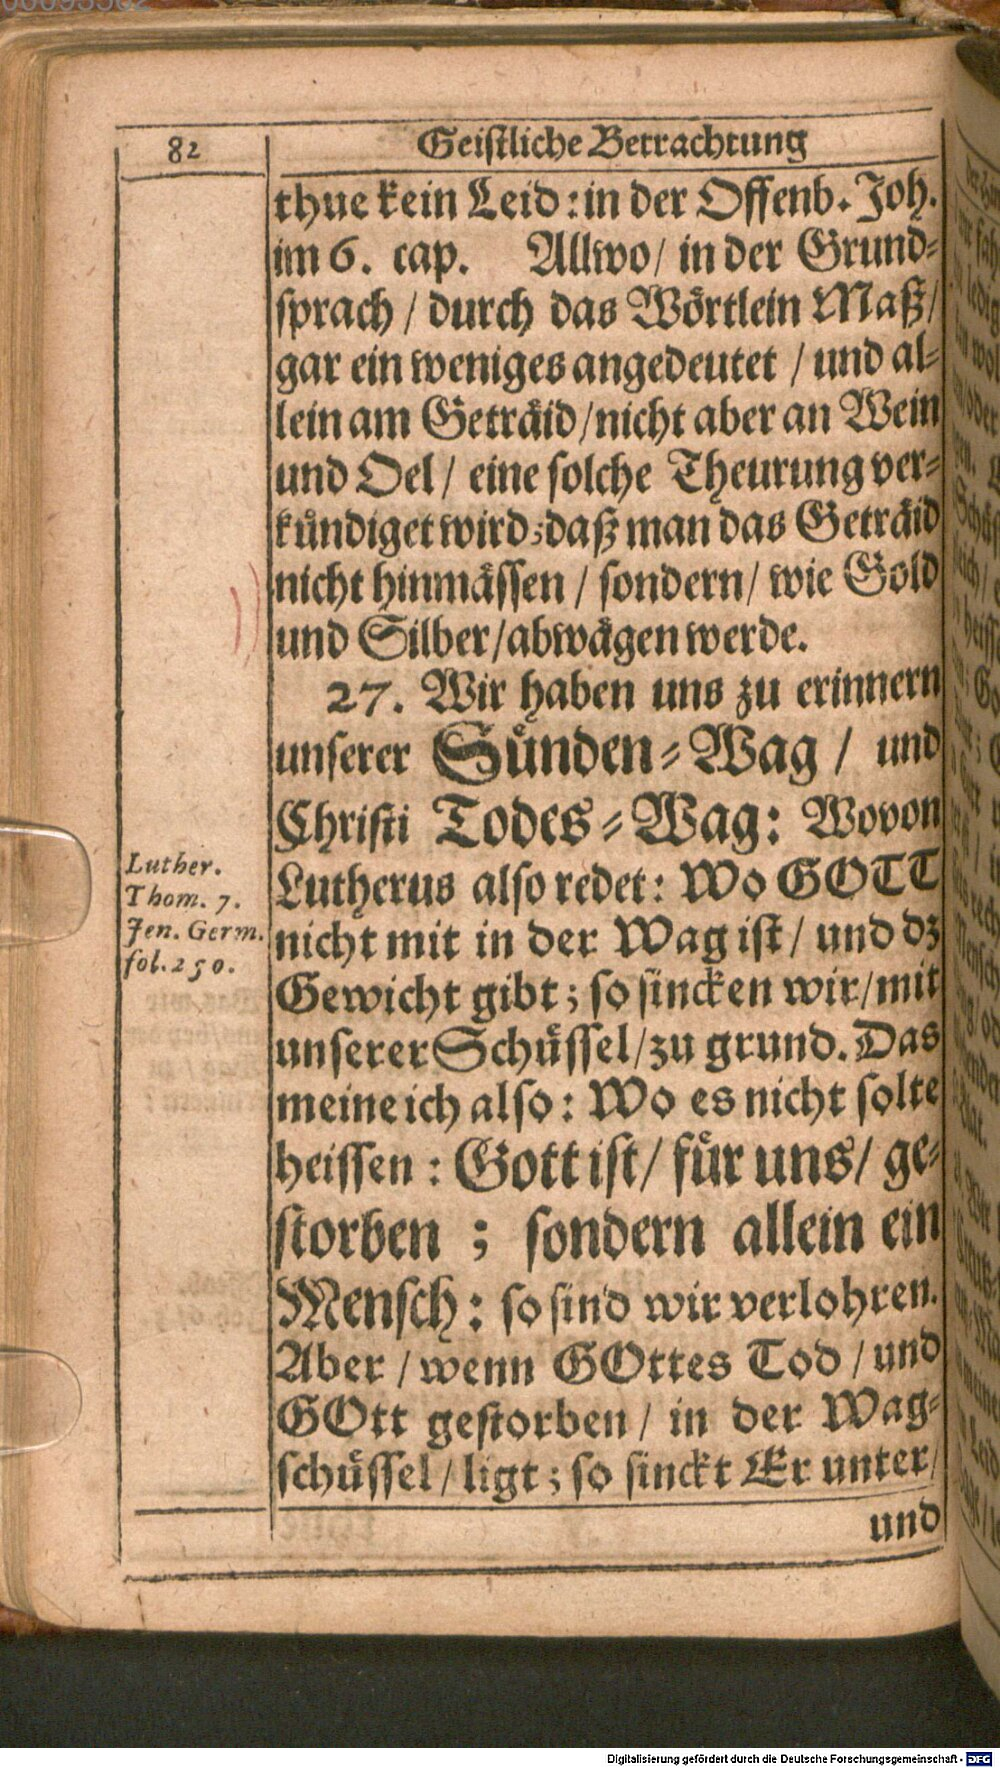 82
Geistliche Betrachtung
thue kein Leid: in der Offenb. Joh.
im 6. cap. Allwo/ in der Grund-
sprach / durch das Wörtlein Maß/
gar ein weniges angedeutet / und al-
lein am Geträid/nicht aber an Wein
und Oel/ eine solche Theurung ver-
kündiget wird; daß man das Geträid
nicht hinmässen / sondern/ wie Gold
und Silber/abwägen werde.
27. Wir haben uns zu erinnern
unserer Sünden-Wag / und
Christi Todes-Wag: Wovon
Luther.
Thom. 7.
Jen. Germ.
fol. 250.
Lutherus also redet: Wo GOTT
nicht mit in der Wag ist/ und dz
Gewicht gibt; so sincken wir/mit
unserer Schüssel/zu grund. Das
meine ich also: Wo es nicht solte
heissen: Gott ist/ für uns/ ge-
storben ; sondern allein ein
Mensch: so sind wir verlohren.
Aber / wenn GOttes Tod / und
GOtt gestorben/ in der Wag-
schüssel/ ligt; so sinckt Er unter/
und
Digitalisierung gefördert durch die Deutsche Forschungsgemeinschaft - DFG